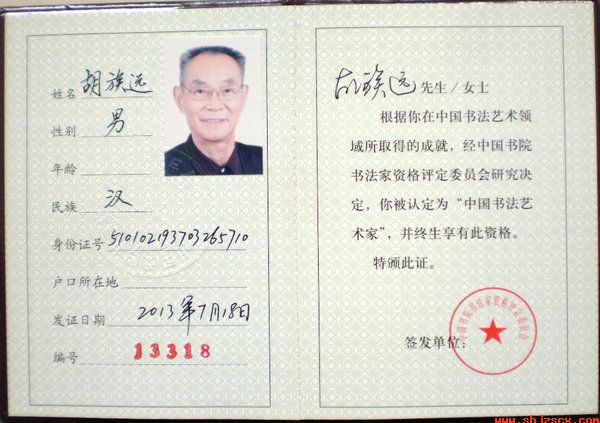 姓名 胡族远
性别 男
年龄
民族 汉
身份证号 510102193703265710
户口所在地
发证日期 2013年7月18日
编号 13318
胡族远 先生/女士
根据你在中国书法艺术领
域所取得的成就，经中国书院
书法家资格评定委员会研究决
定，你被认定为“中国书法艺
术家”，并终生享有此资格。
特颁此证。
签发单位：
中国书院书法家资格评定委员会
www.shjzscx.com